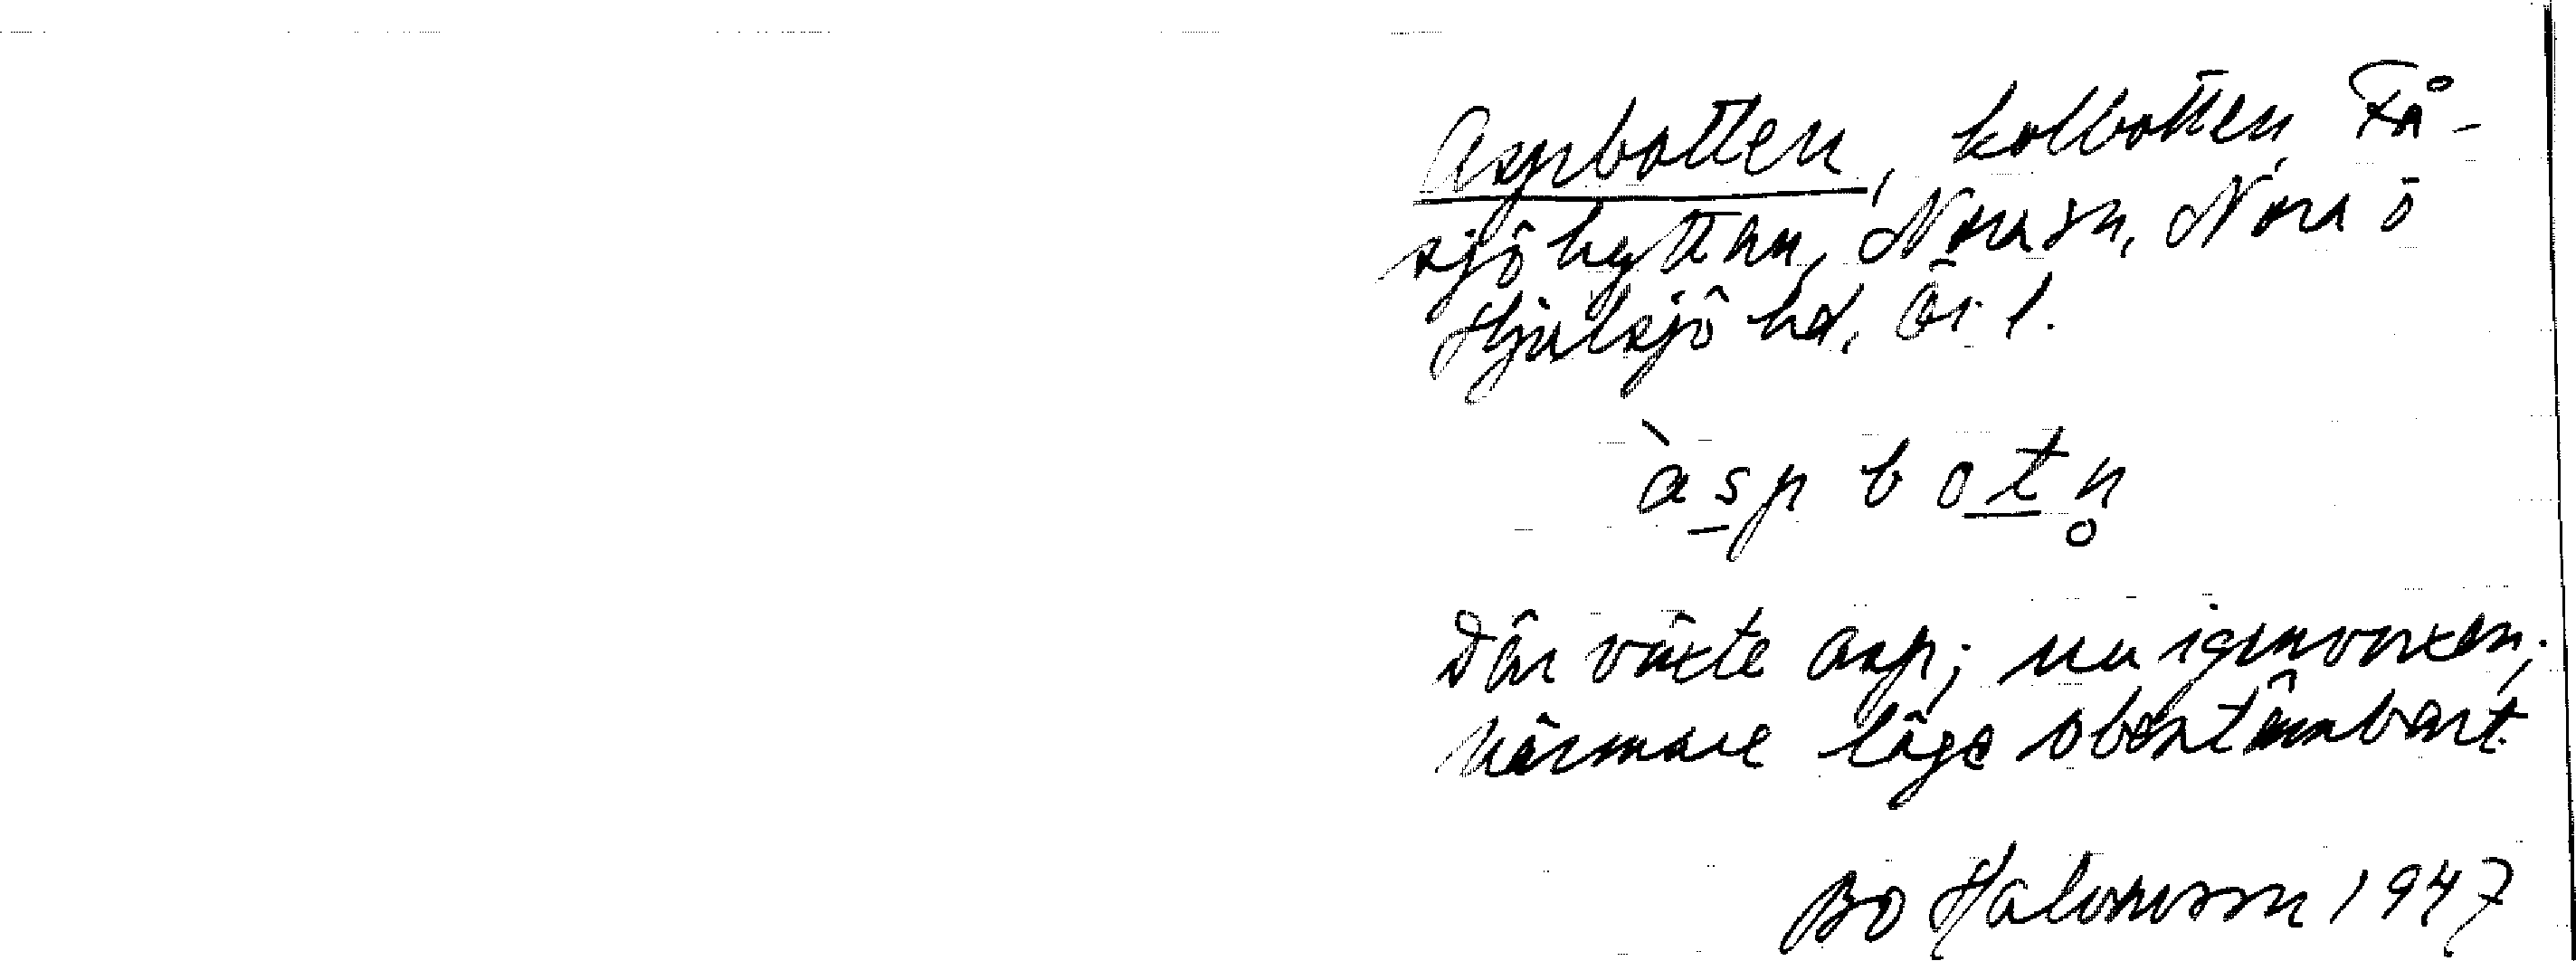 Aspbotten, kolbotten, Få-
sjöhyttan, Nora sn, Nora ö
Hjulsjö hd, Ör l.
àspbotn̥
Där växte asp; nu igenvuxen;
närmare läge obestämbart.
Bo Halvarsson 1947